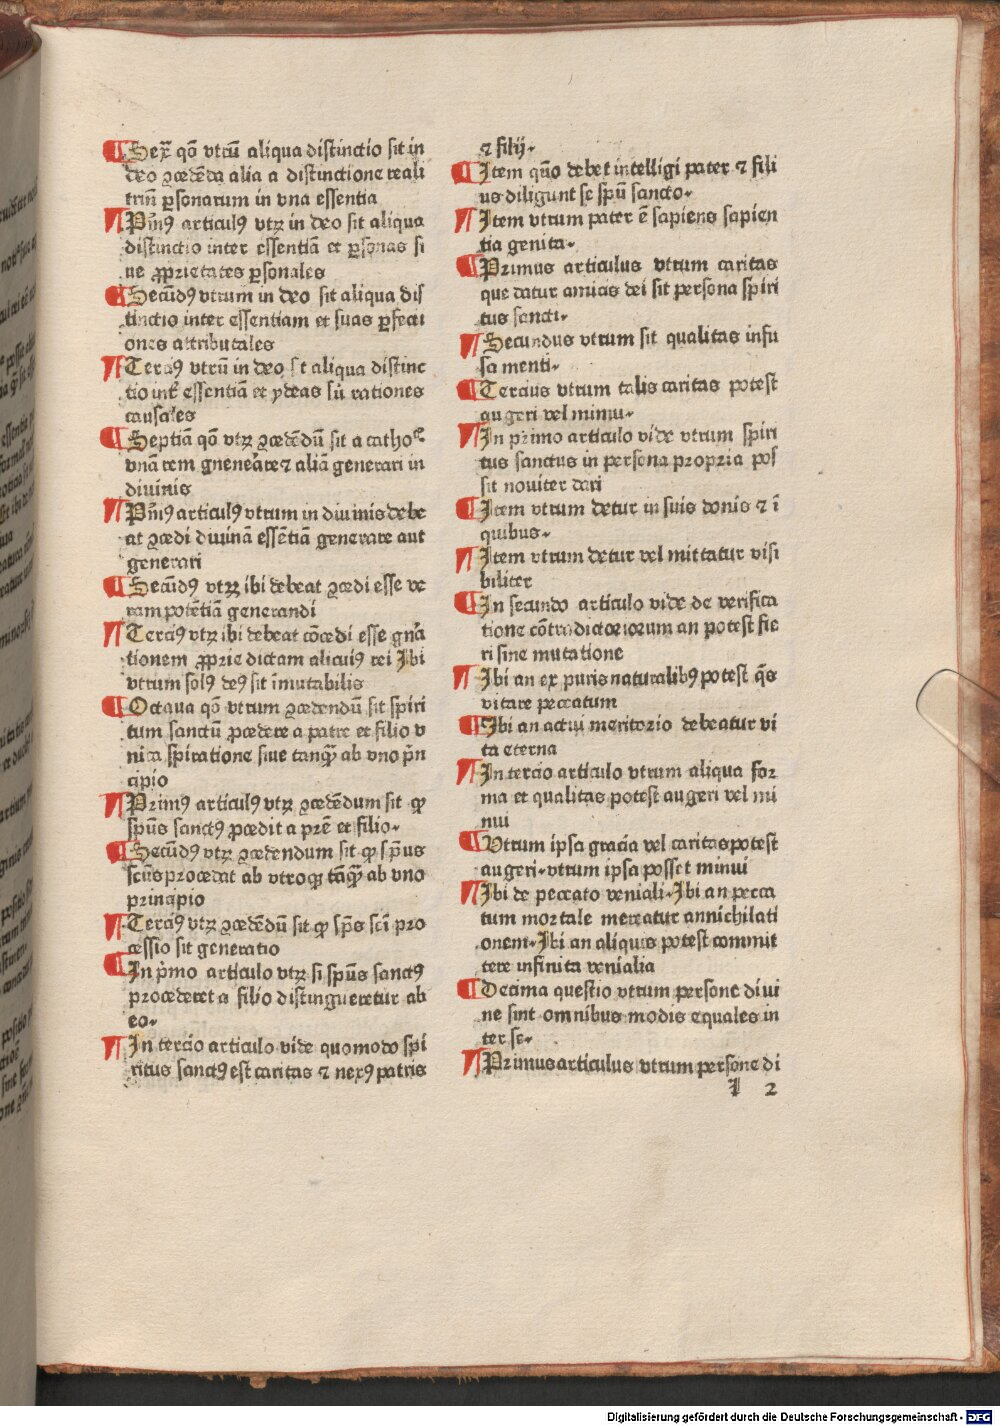 ¶ Sex̄ qō vtrū aliqua distinctio sit in
deo ꝯcedēda alia a distinctione reali
triū ꝑsonarum in vna essentia
¶ Pm̄ꝰ articulꝰ vtꝝ in deo sit aliqua
distinctio inter essentiā et ꝑsonas si
ue ꝓprietates ꝑsonales
¶ Secūdꝰ vtrum in deo sit aliqua dis
tinctio inter essentiam et suas ꝑfecti
ones attributales
¶ Terciꝰ vtrū in deo sit aliqua distinc
tio int̄ essentiā et ydeas siū rationes
causales
¶ Septiā qō vtꝝ ꝯcedēdū sit a cathoᶜᵉ
vnā rem gneneāre ⁊ aliā generari in
diuinis
¶ Pm̄ꝰ articulꝰ vtrum in diuinis debe
at ꝯcedi diuinā essētiā generare aut
generari
¶ Secūdꝰ vtꝝ ibi debeat ꝯcedi esse ve
ram potētiā generandi
¶ Terciꝰ vtꝝ ibi debeat cōcedi esse gn̄a
tionem ꝓprie dictam alicuiꝰ rei Ibi
vtrum solꝰ deꝰ sit īmutabilis
¶ Octaua qō vtrum ꝯcedendū sit spiri
tum sanctū ꝓcedere a patre et filio v
nica spiratione siue tanqꝫ ab vno pn̄
cipio
¶ Primꝰ articulꝰ vtꝝ ꝯcedēdum sit ꝙ
spūs sanctꝰ ꝓcedit a prē et filio.
¶ Secūdꝰ vtꝝ ꝯcedendum sit ꝙ spūs
scūs procedat ab vtroqꝫ tāqꝫ ab vno
principio
¶ Terciꝰ vtꝝ ꝯcedēdū sit ꝙ spūs scī pro
cessio sit generatio
¶ In pmō articulo vtꝝ si spūs sanctꝰ
procederet a filio distingueretur ab
eo.
¶ In tercio articulo vide quomodo spi
ritus sanctꝰ est caritas ⁊ nexꝰ patris
⁊ filij.
¶ Item qūo debet intelligi pater ⁊ fili
us diligunt se spū sancto.
¶ Item vtrum pater ē sapiens sapien
tia genita.
¶ Primus articulus vtrum caritas
que datur amicis dei sit persona spiri
tus sancti.
¶ Secundus vtrum sit qualitas infu
sa menti.
¶ Tercius vtrum talis caritas potest
augeri vel minui.
¶ In primo articulo vide vtrum spiri
tus sanctus in persona propria pos
sit nouiter dari
¶ Item vtrum detur in suis donis ⁊ ī
quibus.
¶ Item vtrum detur vel mittatur visi
biliter
¶ In secundo articulo vide de verifica
tione cōtradictoriorum an potest fie
ri sine mutatione
¶ Ibi an ex puris naturalibꝰ potest qͥs
vitare peccatum
¶ Ibi an actui meritorio debeatur vi
ta eterna
¶ In tercio articulo vtrum aliqua for
ma et qualitas potest augeri vel mi
nui
¶ Vtrum ipsa gracia vel caritas potest
augeri. vtrum ipsa posset minui
¶ Ibi de peccato veniali. Ibi an pecca
tum mortale mereatur annichilati
onem. Ibi an aliquis potest commit
tere infinita venialia
¶ Decima questio vtrum persone diui
ne sint omnibus modis equales in
ter se.
¶ Primus articulus vtrum persone di
1 2
Digitalisierung gefördert durch die Deutsche Forschungsgemeinschaft - DFG